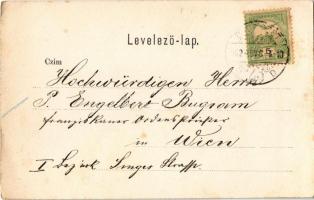 Levelező-lap.
Czim
Hochwürdigen Herrn
P. Engelbert
Franziskaner Ordenspriester
in Wien
I Bezirk Strasse.